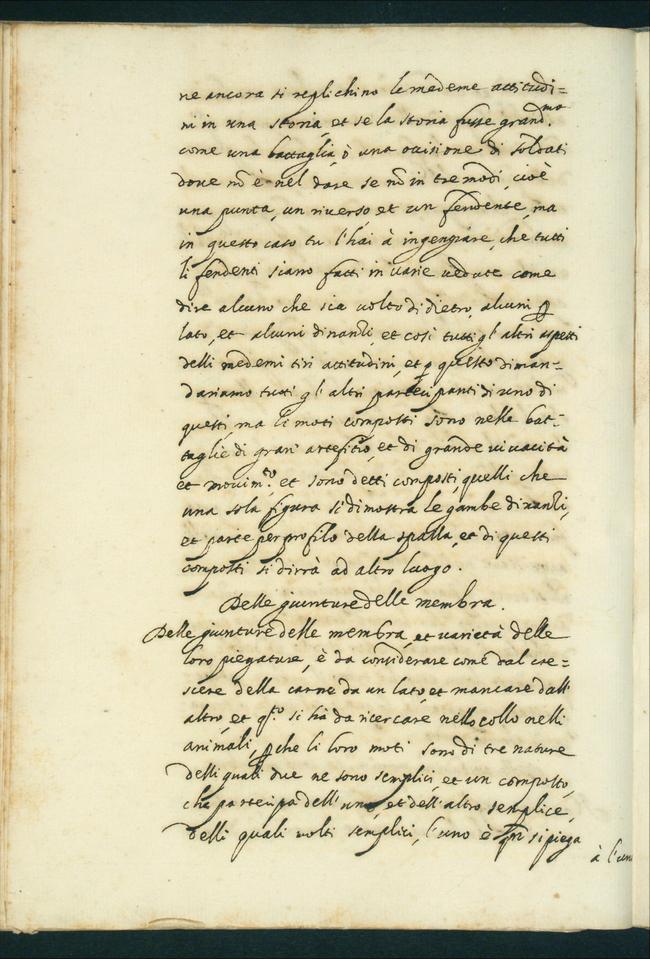 ne ancora si replichino le medeme attitudi=
ni in una storia, et se la storia fusse grand.ma
come una battaglia, ò una occisione di soldati
doue nõ è nel dare se nõ in tre modi, cioè
una punta, un riuerso et un fendente, ma
in questo caso tu l'hai à ingengiare, che tutti
li fendenti siano fatti in uarie uedute come
dire alcuno che sia uolto di dietro, alcuni p
lato, et alcuni dinanti, et così tutti gl'altri aspetti
delli medemi tiri attitudini, et p questo diman=
dariamo tutti gl'altri partecipanti di uno di
questi, ma li moti composti sono nelle bat=
taglie di gran' artefitio, et di grande uiuacità
et mouim.to, et sono detti composti, quelli che
una sola figura si dimostra le gambe dinanti,
et parte per profilo della spalla, et di questi
composti si dirrà ad altro luogo.
Delle giunture delle membra.
Delle giunture delle membra, et uarietà delle
loro piegature, è da considerare come dal cre=
scere della carne da un lato, et mancare dall'
altro, et q.to si hà da ricercare nello collo nelli
animali, pche li loro moti sono di tre nature
delli quali due ne sono semplici, et un composto,
che partecipa dell'uno, et dell'altro semplice,
delli quali molti semplici, l'uno è qñ si piega
à l'uno